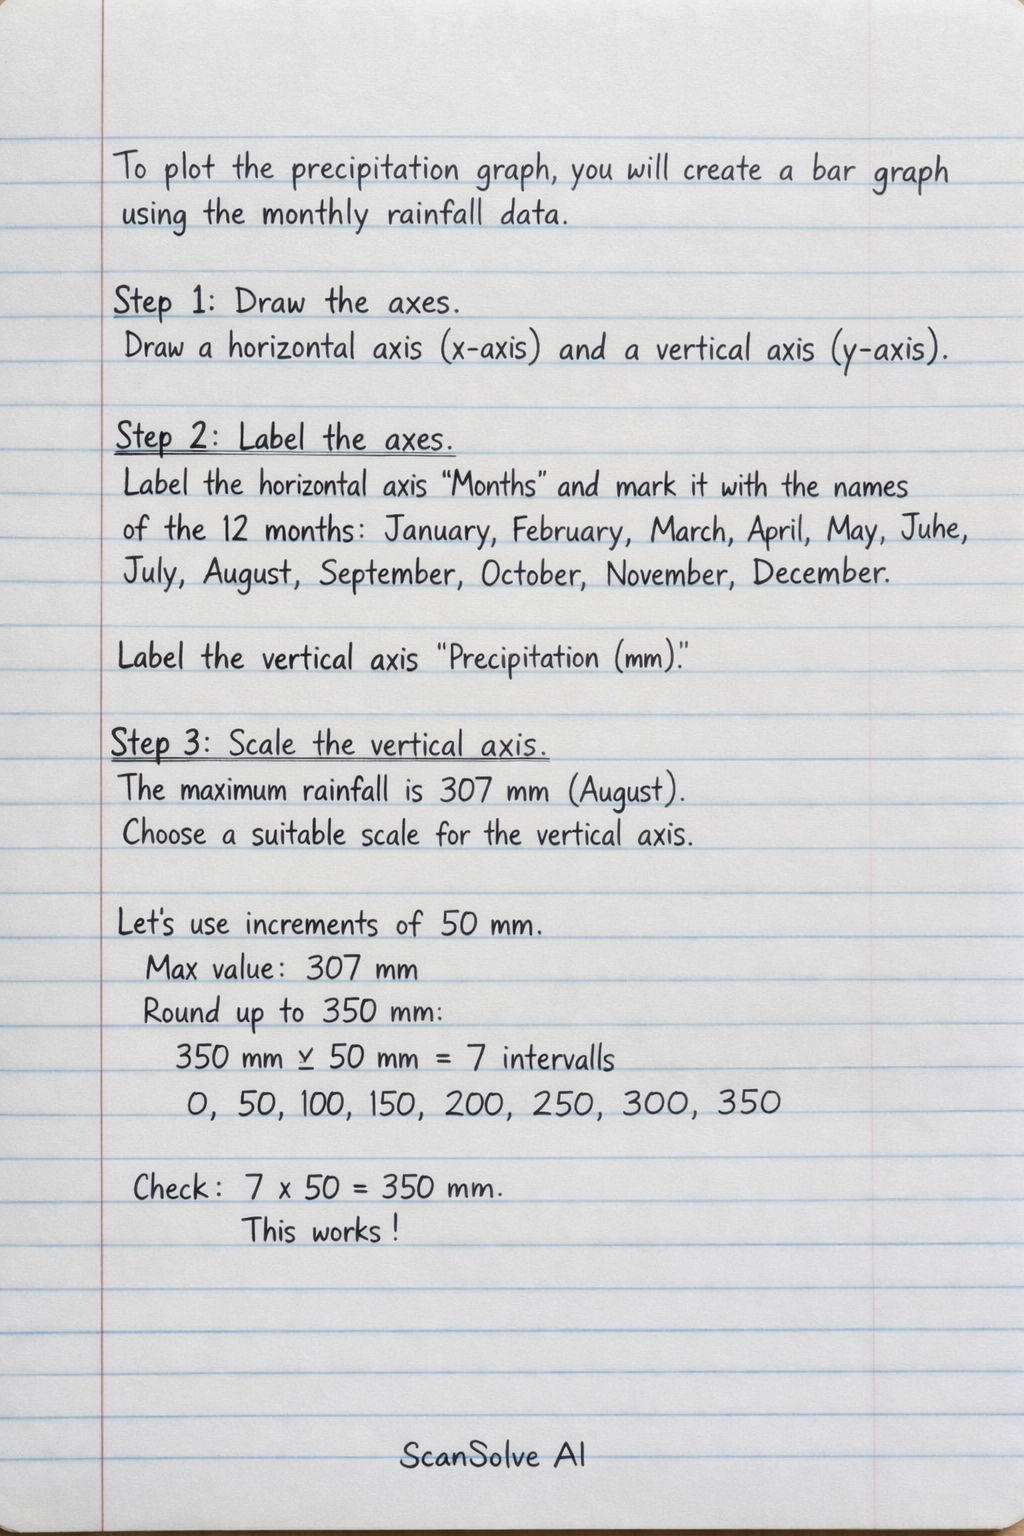 To plot the precipitation graph, you will create a bar graph
using the monthly rainfall data.
Step 1: Draw the axes.
Draw a horizontal axis (x-axis) and a vertical axis (y-axis).
Step 2: Label the axes.
Label the horizontal axis "Months" and mark it with the names
of the 12 months: January, February, March, April, May, Juhe,
July, August, September, October, November, December.
Label the vertical axis "Precipitation (mm)."
Step 3: Scale the vertical axis.
The maximum rainfall is 307 mm (August).
Choose a suitable scale for the vertical axis.
Let's use increments of 50 mm.
Max value: 307 mm
Round up to 350 mm:
350 mm ⊻ 50 mm = 7 intervalls
0, 50, 100, 150, 200, 250, 300, 350
Check: 7 x 50 = 350 mm.
This works!
ScanSolve AI